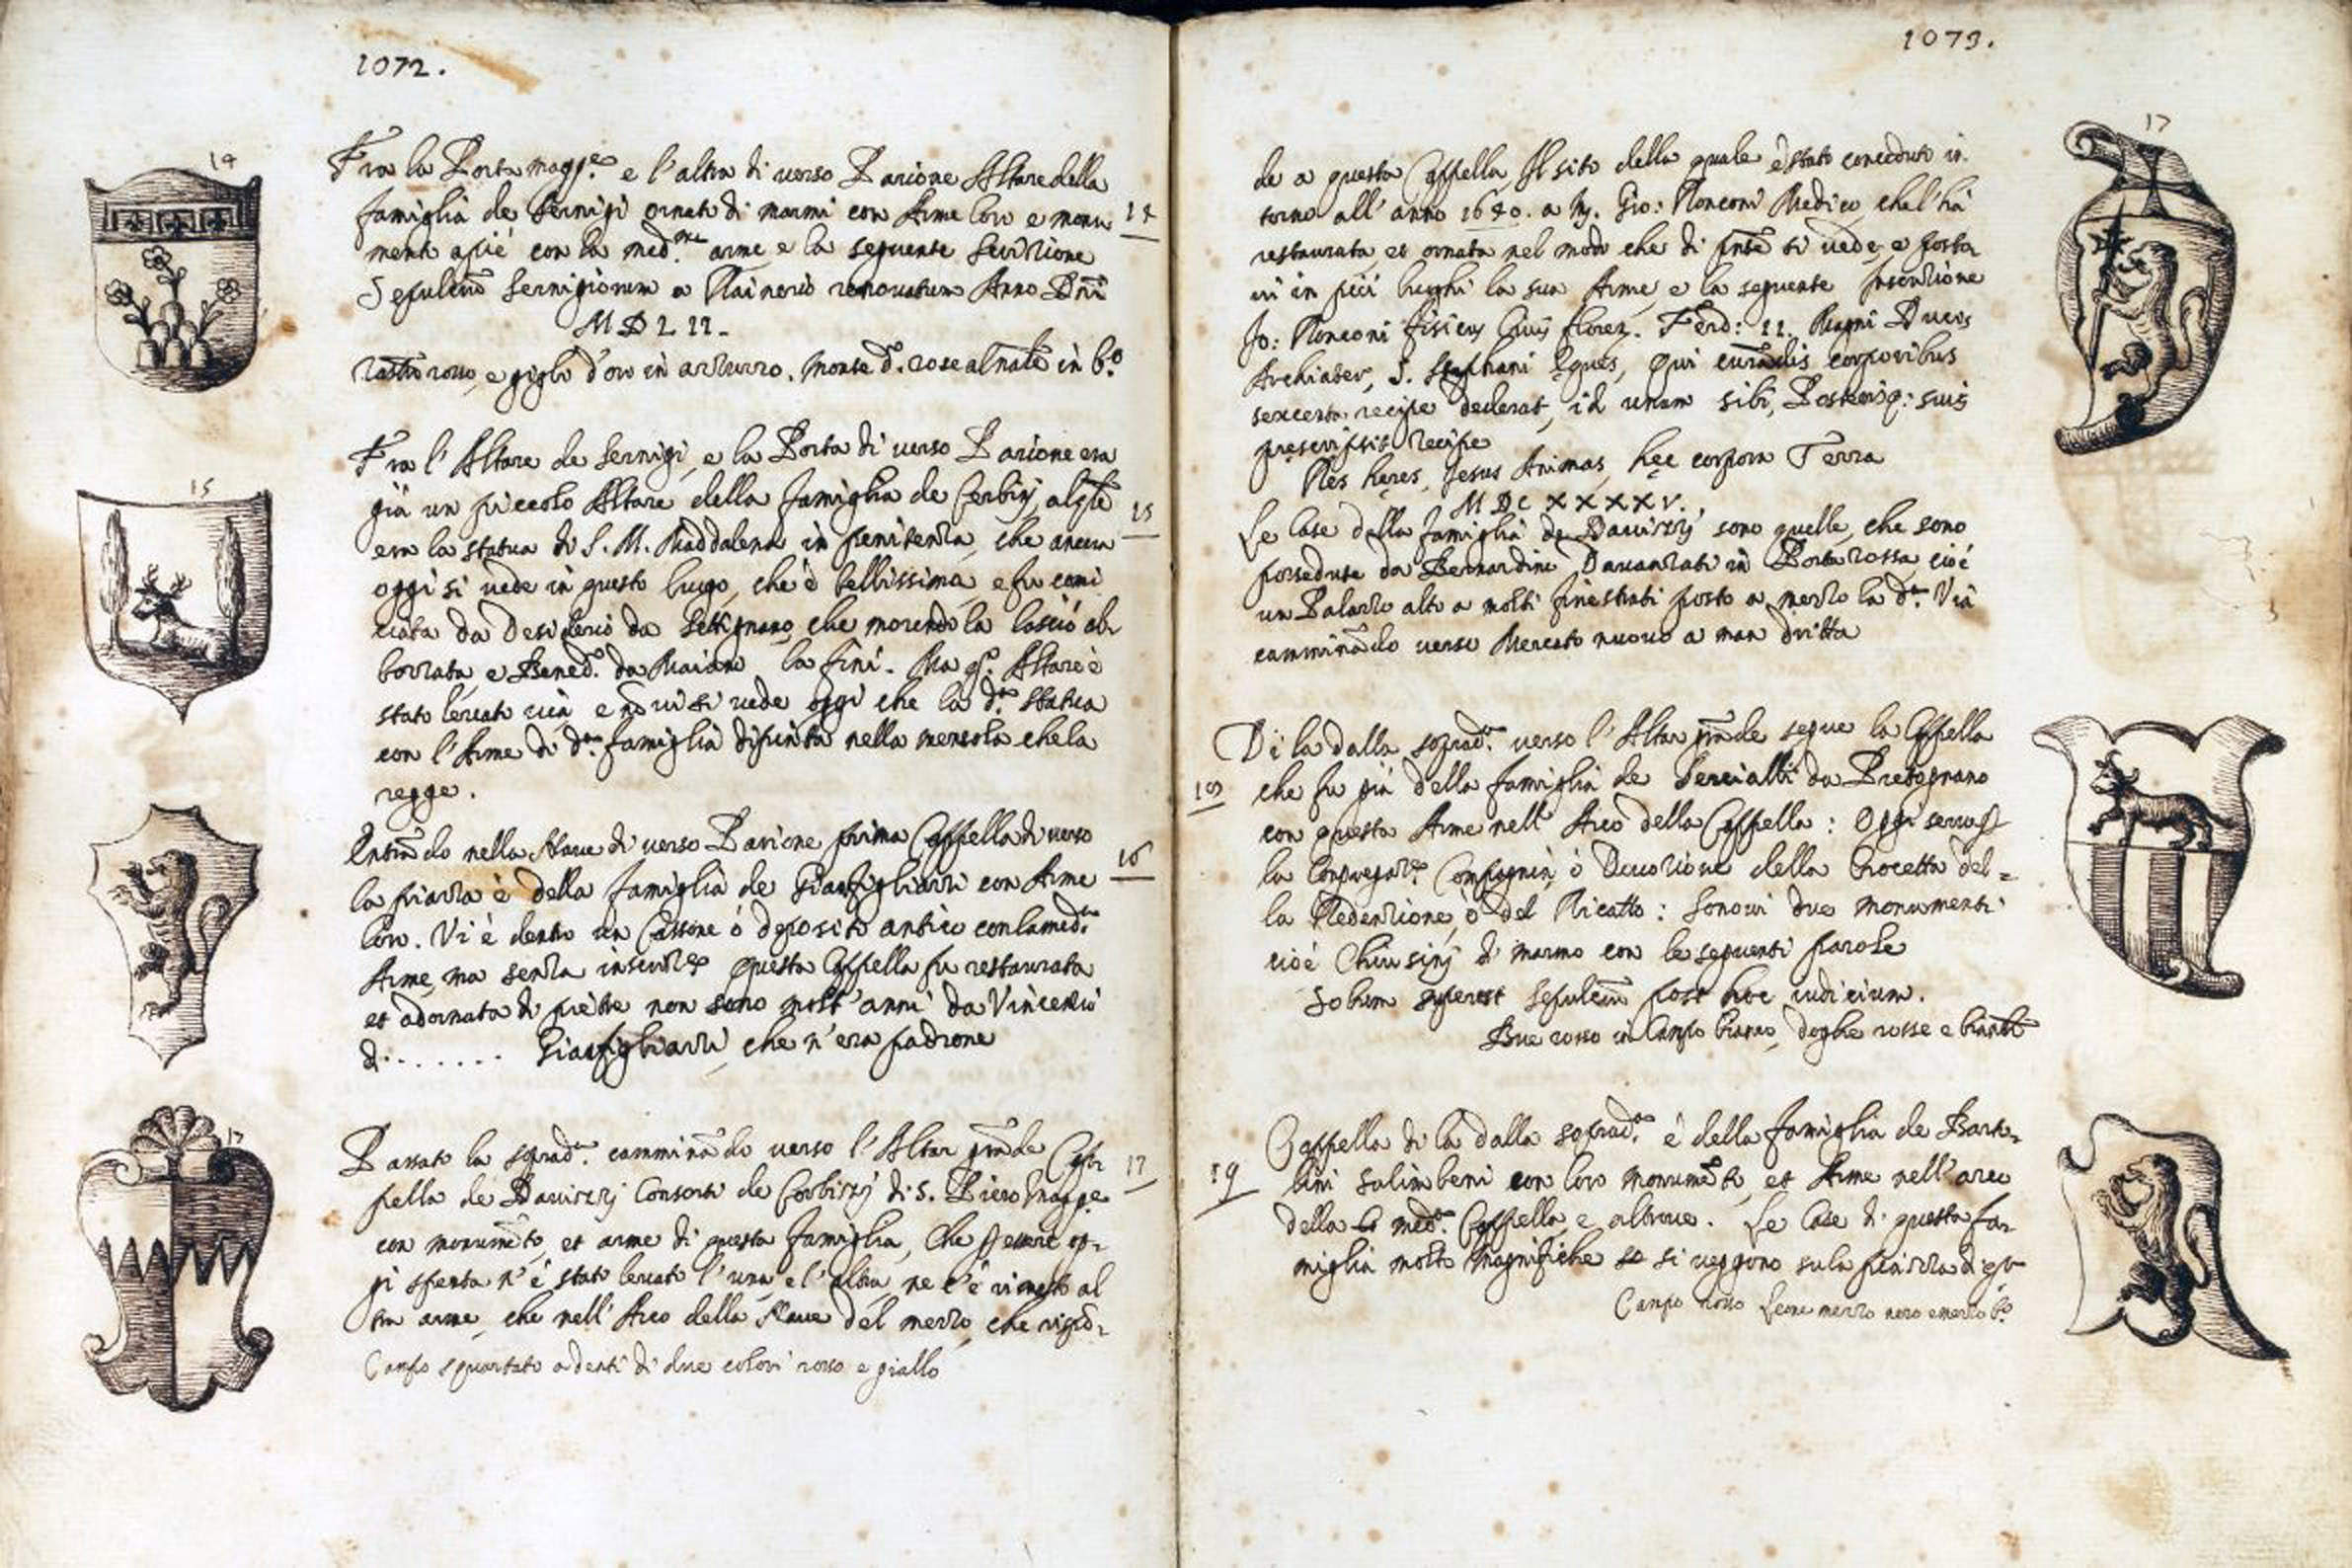 1072.
14
Fra la Porta magg.re e l'altra di verso Parione Altare della
famiglia de Sernigi ornato di marmi con Arme loro e monu 14
mento a piè con la med.ma arme e la seguente Scrizione
Sepulcrū Sernigiorum a Rainerio renovatum Anno Dñi
MDLII.
rastro rosso, e gigli d'oro in azzurro. monte d. rose al nāle in b.o
Fra l'Altare de Sernigi, e la Porta di verso Parione era
15
già un piccolo Altare della famiglia de Cerbini, al
15
era la statua di S. M. Maddalena in penitenza, che ancora
oggi si vede in questo luogo, che è bellissima, e fu comi
ciata da Desiderio da Settignano, che morendo la lasciò ab
bozzata, e Bened. da Maiano la finì. Ma q.o Altare è
stato levato via e nō vi si vede oggi che la d.a statua
con l'Arme di d.a famiglia dipinta nella mensola che la
regge.
Entrādo nella Nave di verso Parione prima Cappella di verso
la piazza è della famiglia de Gianfigliazzi con Arme 16
loro. Vi è dentro un Cassone ò deposito antico con la med.a
Arme, ma senza inscriz.e questa Cappella fu restaurata
et adornata di pietre non sono molt'anni da Vincenzio
di . . . . . . . Gianfigliazzi, che n'era padrone
17
Passato la soprad.a camminādo verso l'Altar grāde Cap
pella de Davizzj Consorti de Corbizzj di S. Piero Magg.e 17
con monumēto, et arme di questa famiglia, che essere og-
gi spenta n'è stato levato l'una e l'altra, ne c'è rimasto al
tra arme, che nell'Arco della Nave del mezzo, che rispō-
Campo squartato a denti di due colori rosso e giallo
1073.
17
de a questa Cappella, Il sito della quale è stato conceduto in
torno all'anno 1640. a M. Gio: Ronconi Medico, che l'hà
restaurata et ornata nel modo che di pnte si vede, e posta
vi in più luoghi la sua Arme e la seguente Inscrizione
Jo: Ronconi fisicus Civis floren. Ferd: II. Magni Ducis
Archiater, S. Stephani Eques, qui curādis corporibus
sexcenta recipe dederat, id unum sibi, Posterisq: suis
prescripsit recipe
Res heres, Jesus Animas, hec corpora Terra
MDCXXXXV.
Le Case della famiglia de Davizzj, sono quelle, che sono
possedute da Bernardino Davanzati in Porta rossa cioè
un Palazzo alto a molti finestrati posto a mezzo la d.a Via
camminādo verso Mercato nuovo a man dritta
Di la dalla soprad.a verso l'Altar grāde segue la Cappella
18 che fu già della famiglia de Sercialli da Pretognano
con questa Arme nell'Arco della Cappella: Oggi serve
la Congregaz.e Compagnia, ò Divozione della Crocetta del=
la Redenzione, ò del Ricatto: Sonovi due monumenti
cioè Chiusinj di marmo con le seguenti parole
Solum superest sepulcrū post hoc iudicium.
Bue rosso in Campo bianco, doghe rosse e bianche
Cappella di la dalla soprad.a è della famiglia de Barto-
19 lini Salimbeni con loro monumēto, et Arme nell'arco
della med.a Cappella, e altrove. Le Case di questa fa-
miglia molto magnifiche si veggono su la piazza di q
Campo rosso Leone mezzo nero e mezzo b.o